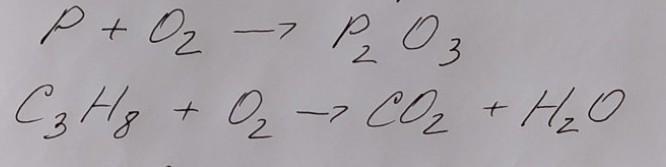 P + O₂ → P₂O₃
C₃H₈ + O₂ → CO₂ + H₂O